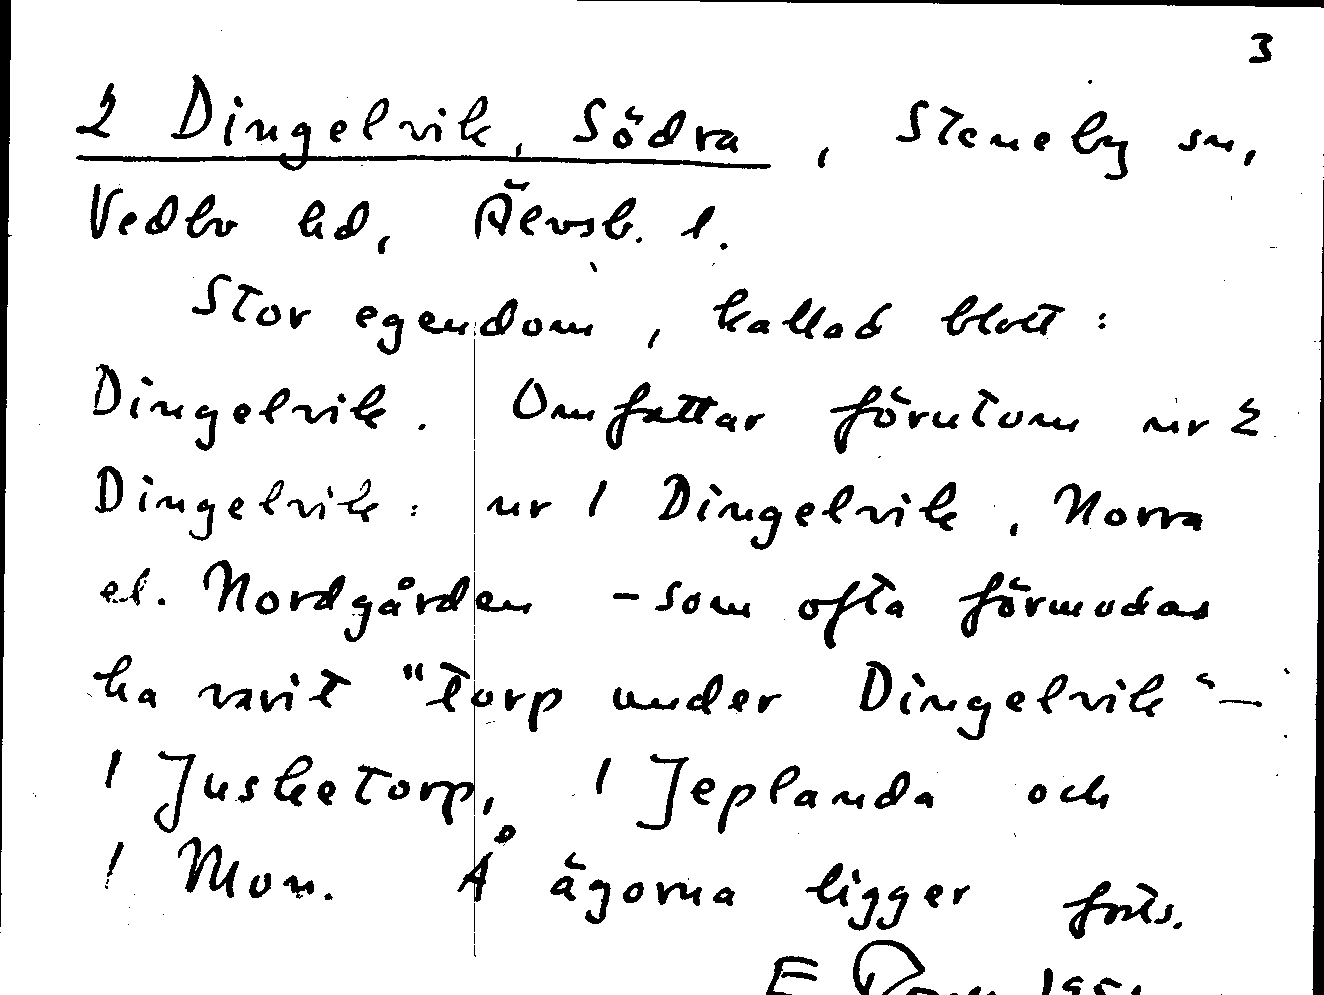 3
2 Dingelvik, Södra, Steneby sn,
Vedbo hd, Älvsb. l.
Stor egendom, kallad blott:
Dingelvik. Omfattar förutom nr 2
Dingelvik: nr 1 Dingelvik, Norra
el. Nordgården - som ofta förmodas
ha varit "torp under Dingelvik" —
1 Jusketorp, 1 Jeplanda och
1 Mon. Å ägorna ligger forts.
E